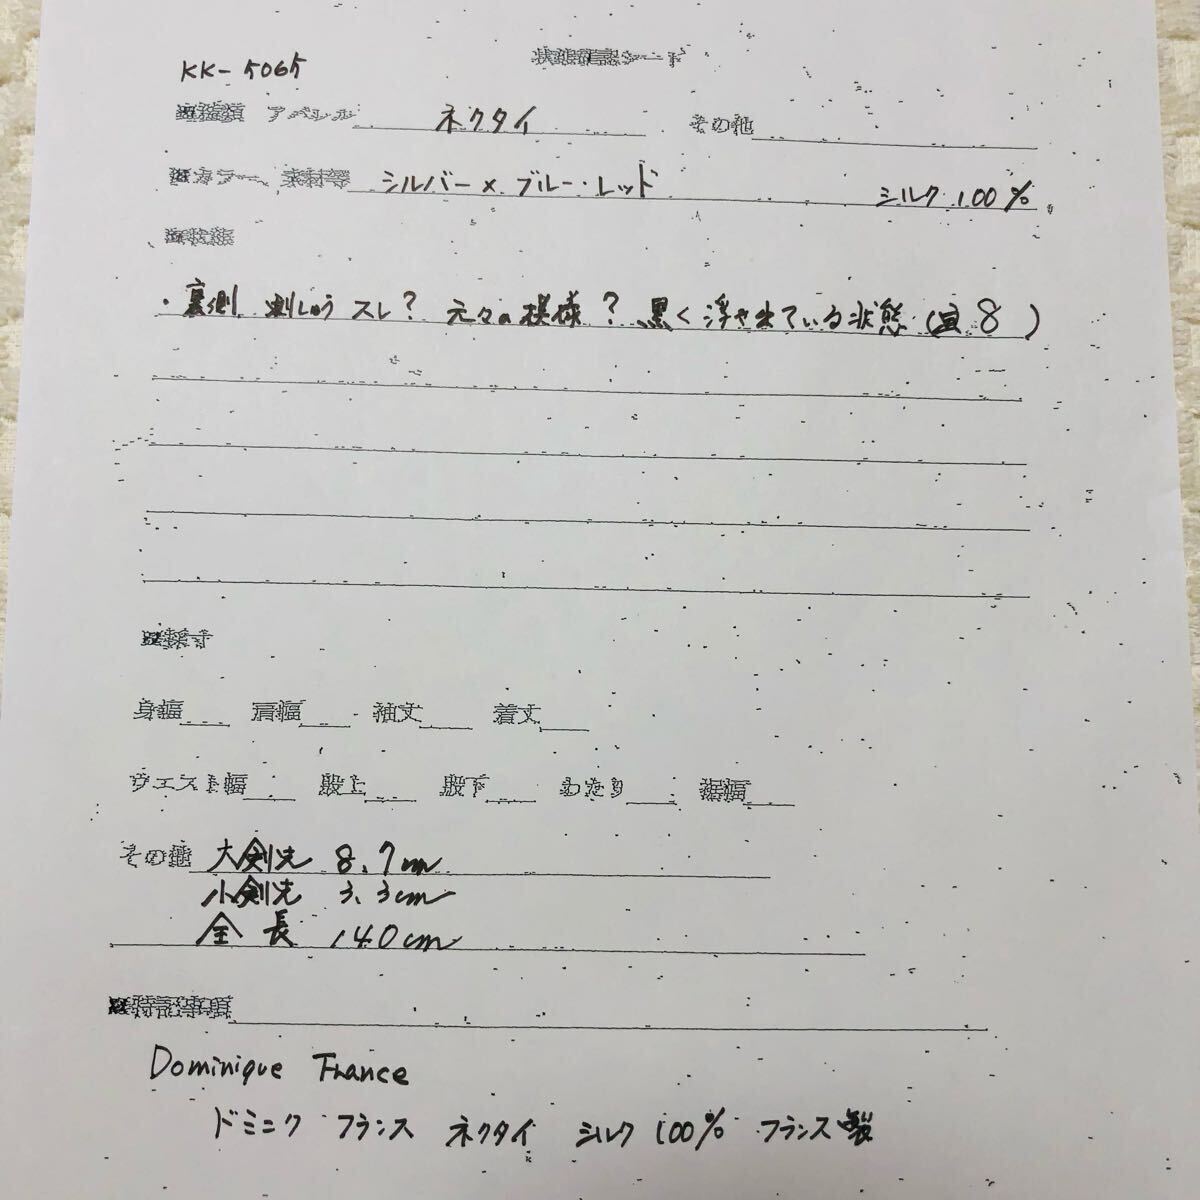 状態確認シート
KK-5065
■種類 アパレル ネクタイ その他
■カラー、素材等 シルバー×ブルー・レッド シルク 100%
■状態
・裏側 刺しゅう スレ? 元々の模様? 黒く浮き出ている状態 (写 8 )
■採寸
身幅 肩幅 袖丈 着丈
ウエスト幅 股上 股下 わたり 裾幅
その他 大剣先 8.7cm
小剣先 3.3cm
全長 140cm
■特記事項
Dominique France
ドミニク フランス ネクタイ シルク 100% フランス製